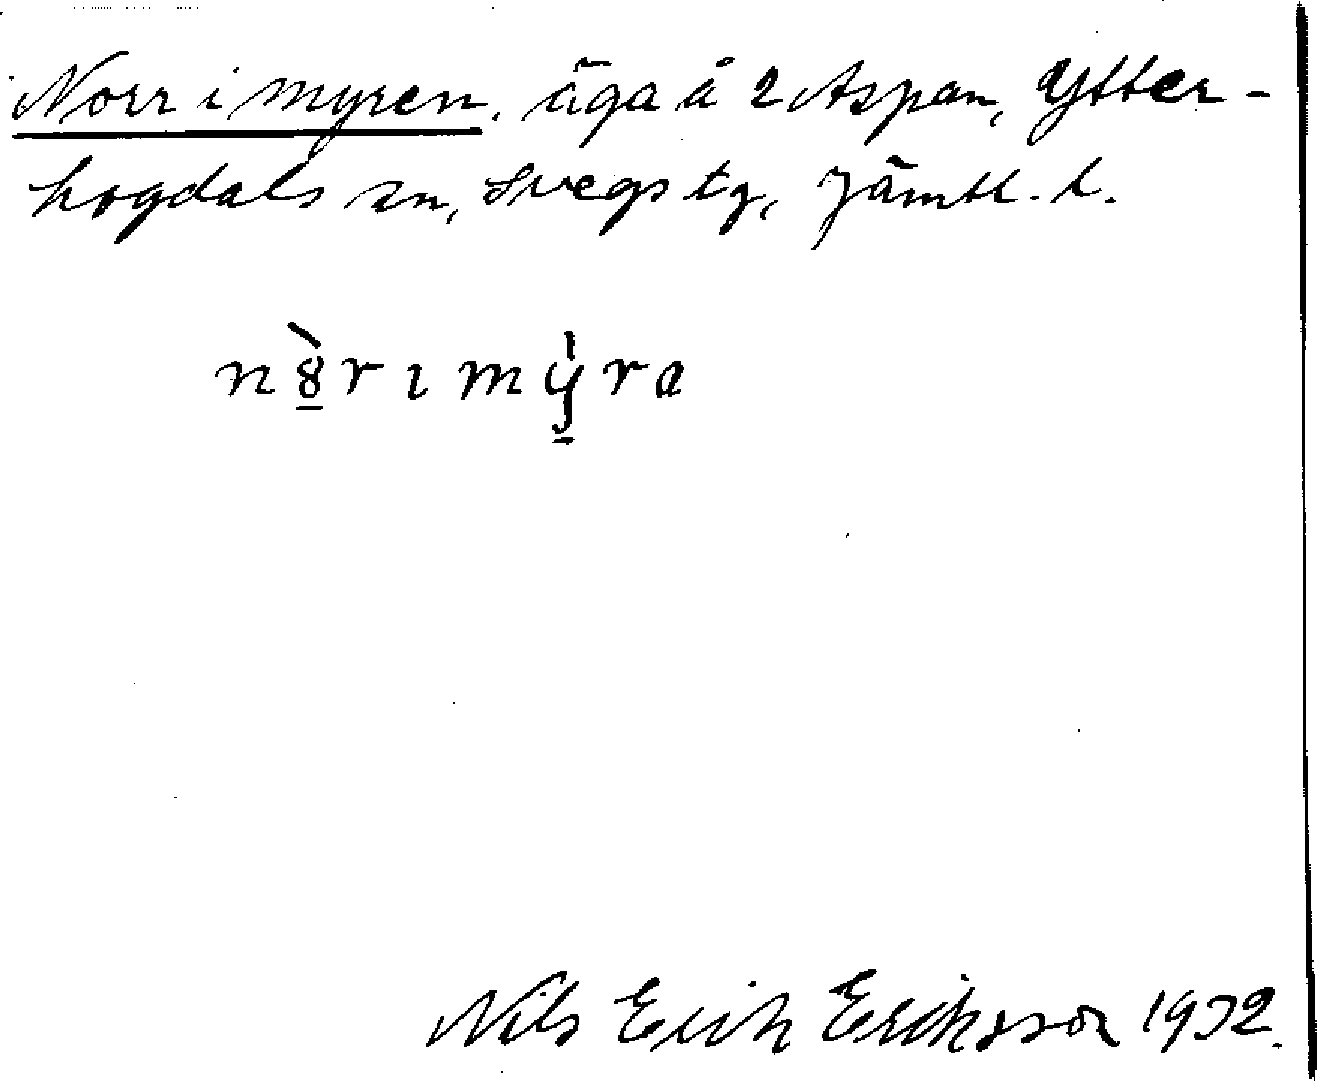 Norr i myren. äga å 2 Aspan, Ytter-
hogdals sn, Svegs tg, Jämtl. l.
n8̀rımýra
Nils Erik Eriksson 1932.